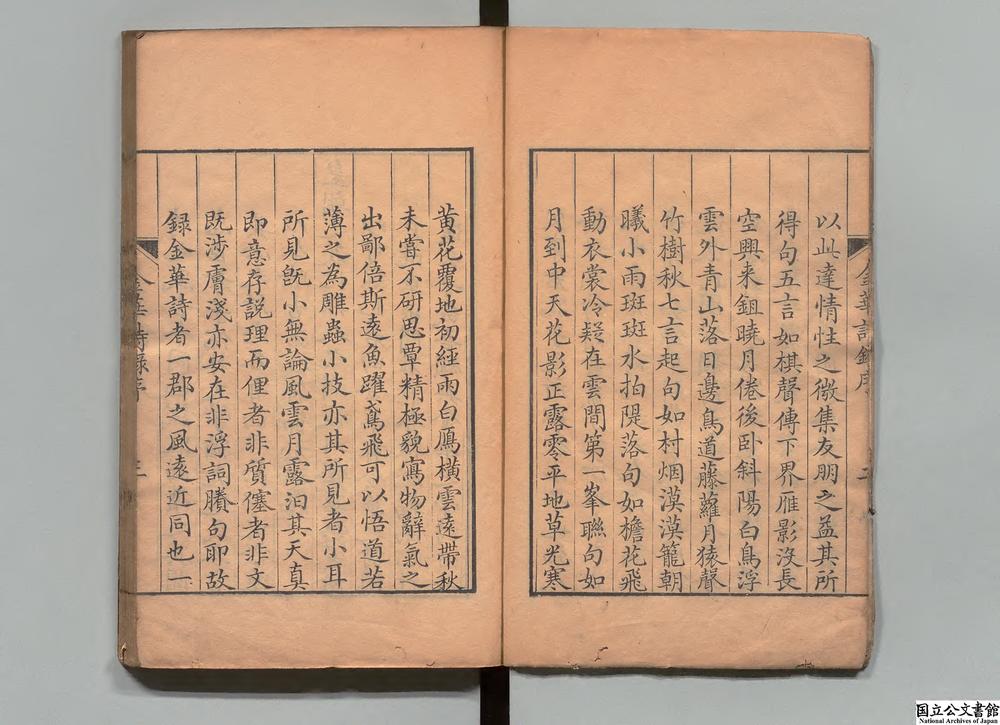 以此達情性之微集友朋之益其所
得句五言如棋聲傳下界雁影沒長
空興来鉏曉月倦後卧斜陽白鳥浮
雲外青山落日邊鳥道藤蘿月猿聲
竹樹秋七言起句如村烟漠漠籠朝
曦小雨斑斑水拍隄落句如檐花飛
動衣裳冷疑在雲間第一峯聯句如
月到中天花影正露零平地草光寒
黄花覆地初經雨白鴈橫雲遠帶秋
未嘗不研思覃精極貌寫物辭氣之
出鄙倍斯遠魚躍鳶飛可以悟道若
薄之為雕蟲小技亦其所見者小耳
所見旣小無論風雲月露汨其天真
即意存説理而俚者非質僿者非文
既涉膚淺亦安在非浮詞賸句耶故
録金華詩者一郡之風遠近同也一
国立公文書館
National Archives of Japan